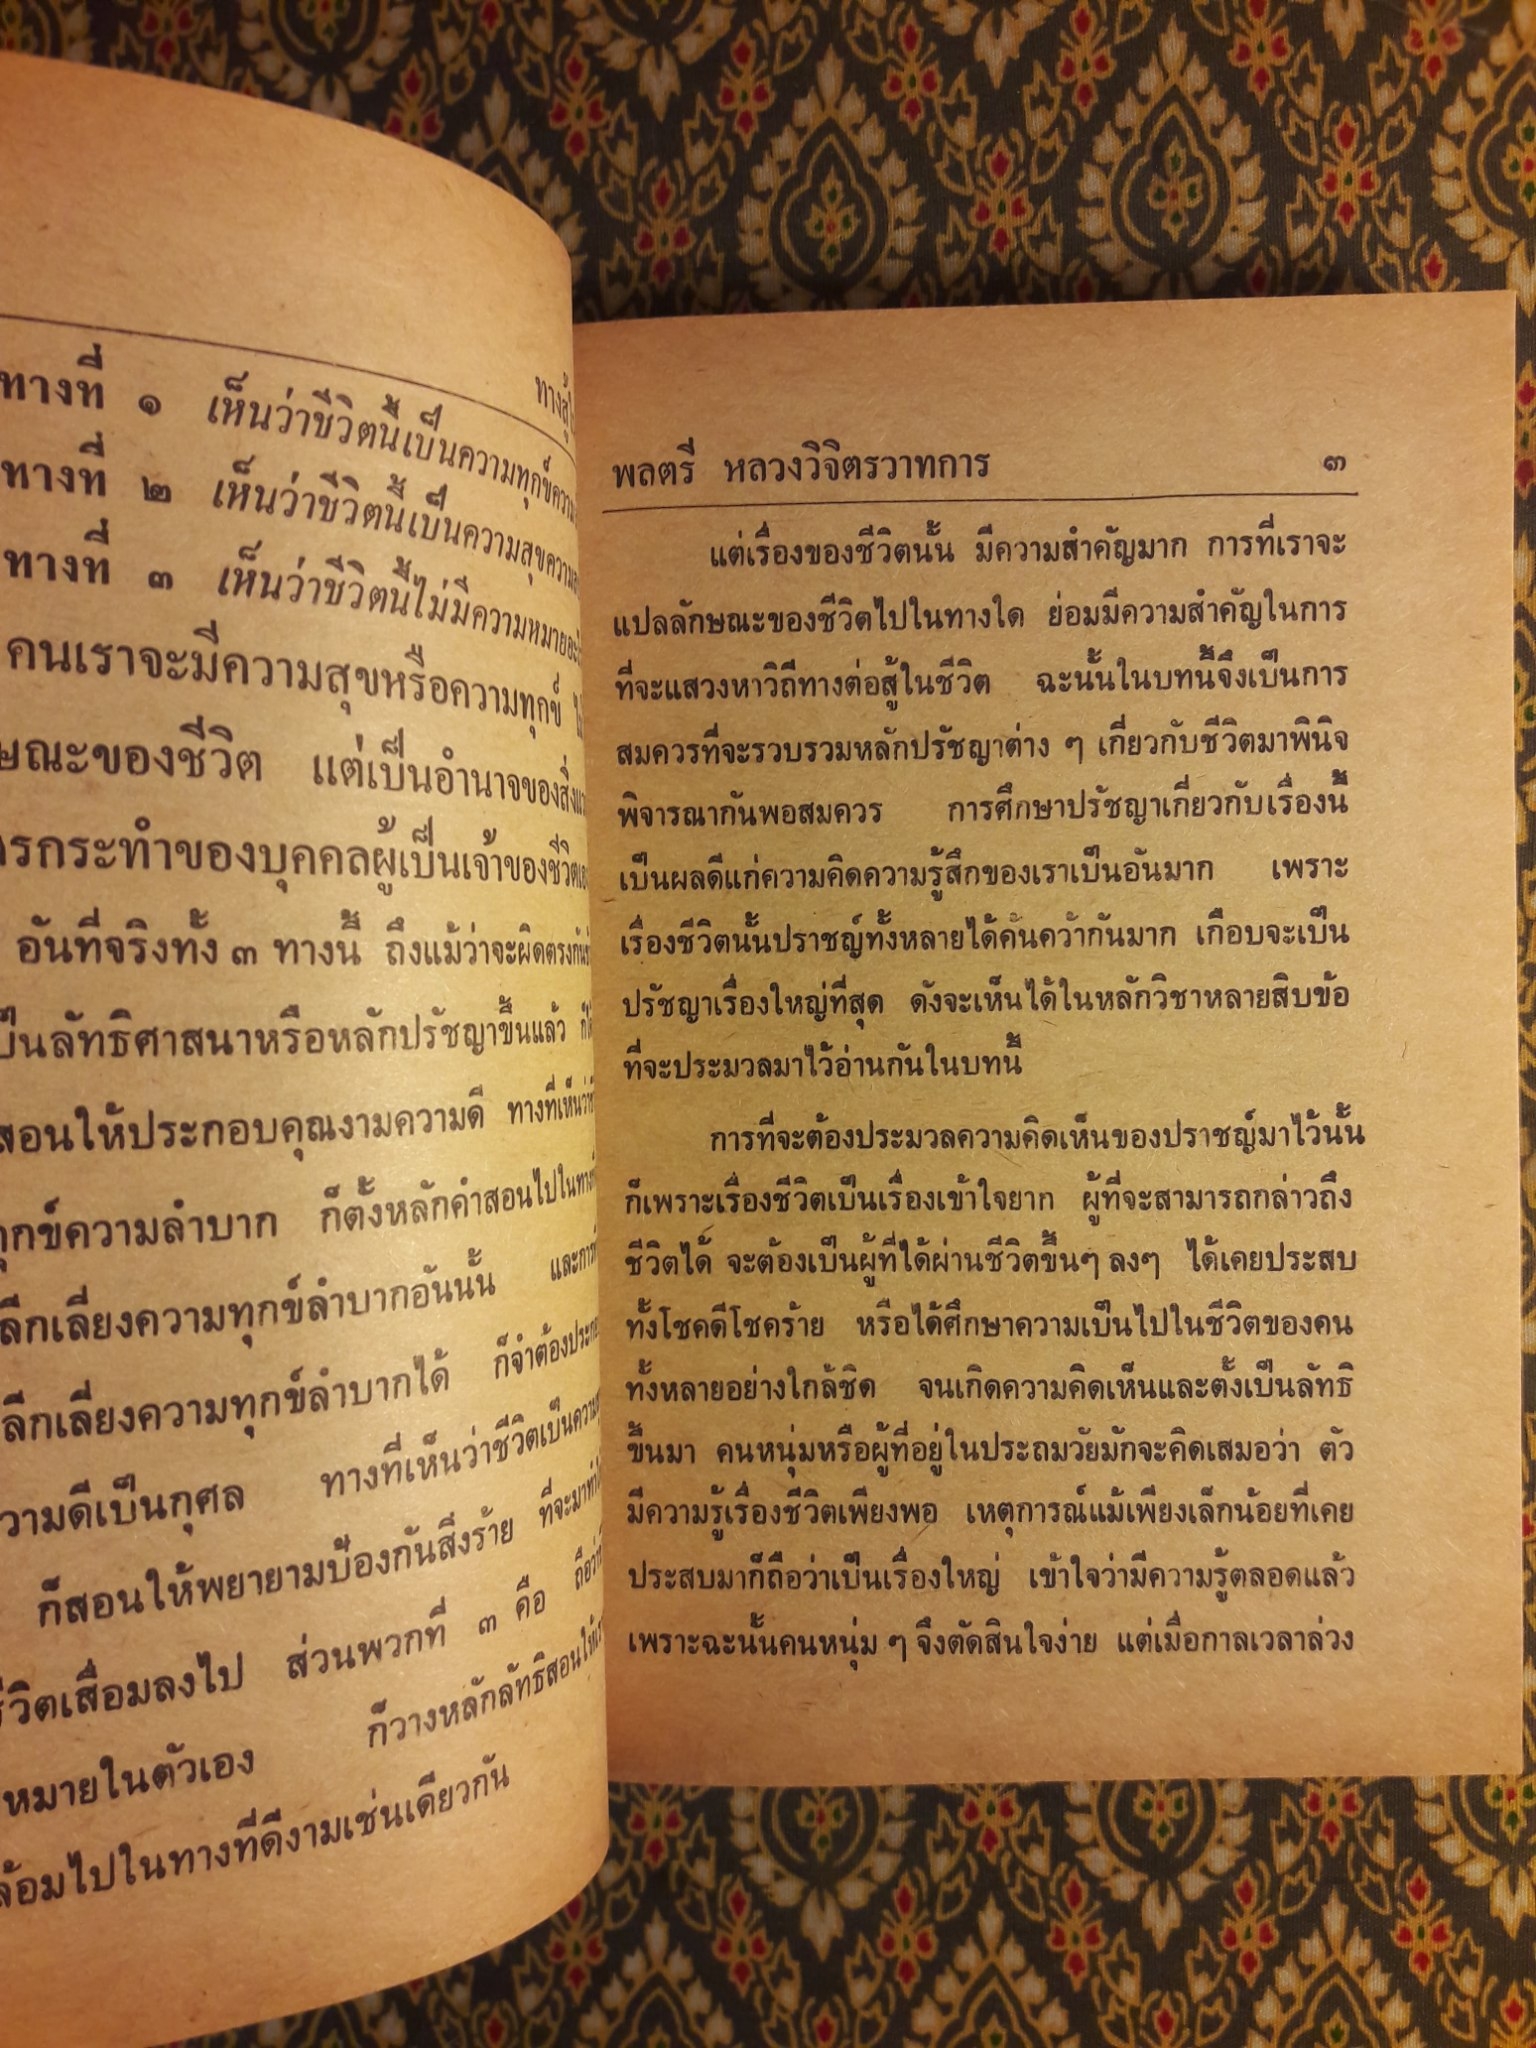 ทางสู้
ทางที่ ๑ เห็นว่าชีวิตนี้เป็นความทุกข์
ทางที่ ๒ เห็นว่าชีวิตนี้เป็นความสุข
ทางที่ ๓ เห็นว่าชีวิตนี้ไม่มีความหมาย
คนเราจะมีความสุขหรือความทุกข์
ของชีวิต แต่เป็นอำนาจของ
กระทำของบุคคลผู้เป็นเจ้าของชีวิต
อันที่จริงทั้ง ๓ ทางนี้ ถึงแม้ว่าจะผิดตรงกัน
เป็นลัทธิศาสนาหรือหลักปรัชญาขึ้นแล้ว
สอนให้ประกอบคุณงามความดี ทางที่เห็นว่า
ความลำบาก ก็ตั้งหลักคำสอนไปในทาง
หลีกเลี่ยงความทุกข์ลำบากอันนั้น
หลีกเลี่ยงความทุกข์ลำบากได้ ก็จำต้อง
ความดีเป็นกุศล ทางที่เห็นว่าชีวิตเป็นความ
ก็สอนให้พยายามป้องกันสิ่งร้าย ที่จะมาทำ
ชีวิตเสื่อมลงไป ส่วนพวกที่ ๓ คือ ถือว่า
หมายในตัวเอง ก็วางหลักลัทธิสอนให้
ไปในทางที่ดีงามเช่นเดียวกัน
พลตรี หลวงวิจิตรวาทการ ๓
แต่เรื่องของชีวิตนั้น มีความสำคัญมาก การที่เราจะ
แปลลักษณะของชีวิตไปในทางใด ย่อมมีความสำคัญในการ
ที่จะแสวงหาวิถีทางต่อสู้ในชีวิต ฉะนั้นในบทนี้จึงเป็นการ
สมควรที่จะรวบรวมหลักปรัชญาต่าง ๆ เกี่ยวกับชีวิตมาพินิจ
พิจารณากันพอสมควร การศึกษาปรัชญาเกี่ยวกับเรื่องนี้
เป็นผลดีแก่ความคิดความรู้สึกของเราเป็นอันมาก เพราะ
เรื่องชีวิตนั้นปราชญ์ทั้งหลายได้ค้นคว้ากันมาก เกือบจะเป็น
ปรัชญาเรื่องใหญ่ที่สุด ดังจะเห็นได้ในหลักวิชาหลายสิบข้อ
ที่จะประมวลมาไว้อ่านกันในบทนี้
การที่จะต้องประมวลความคิดเห็นของปราชญ์มาไว้นั้น
ก็เพราะเรื่องชีวิตเป็นเรื่องเข้าใจยาก ผู้ที่จะสามารถกล่าวถึง
ชีวิตได้ จะต้องเป็นผู้ที่ได้ผ่านชีวิตขึ้นๆ ลงๆ ได้เคยประสบ
ทั้งโชคดีโชคร้าย หรือได้ศึกษาความเป็นไปในชีวิตของคน
ทั้งหลายอย่างใกล้ชิด จนเกิดความคิดเห็นและตั้งเป็นลัทธิ
ขึ้นมา คนหนุ่มหรือผู้ที่อยู่ในประถมวัยมักจะคิดเสมอว่า ตัว
มีความรู้เรื่องชีวิตเพียงพอ เหตุการณ์แม้เพียงเล็กน้อยที่เคย
ประสบมาก็ถือว่าเป็นเรื่องใหญ่ เข้าใจว่ามีความรู้ตลอดแล้ว
เพราะฉะนั้นคนหนุ่ม ๆ จึงตัดสินใจง่าย แต่เมื่อกาลเวลาล่วง